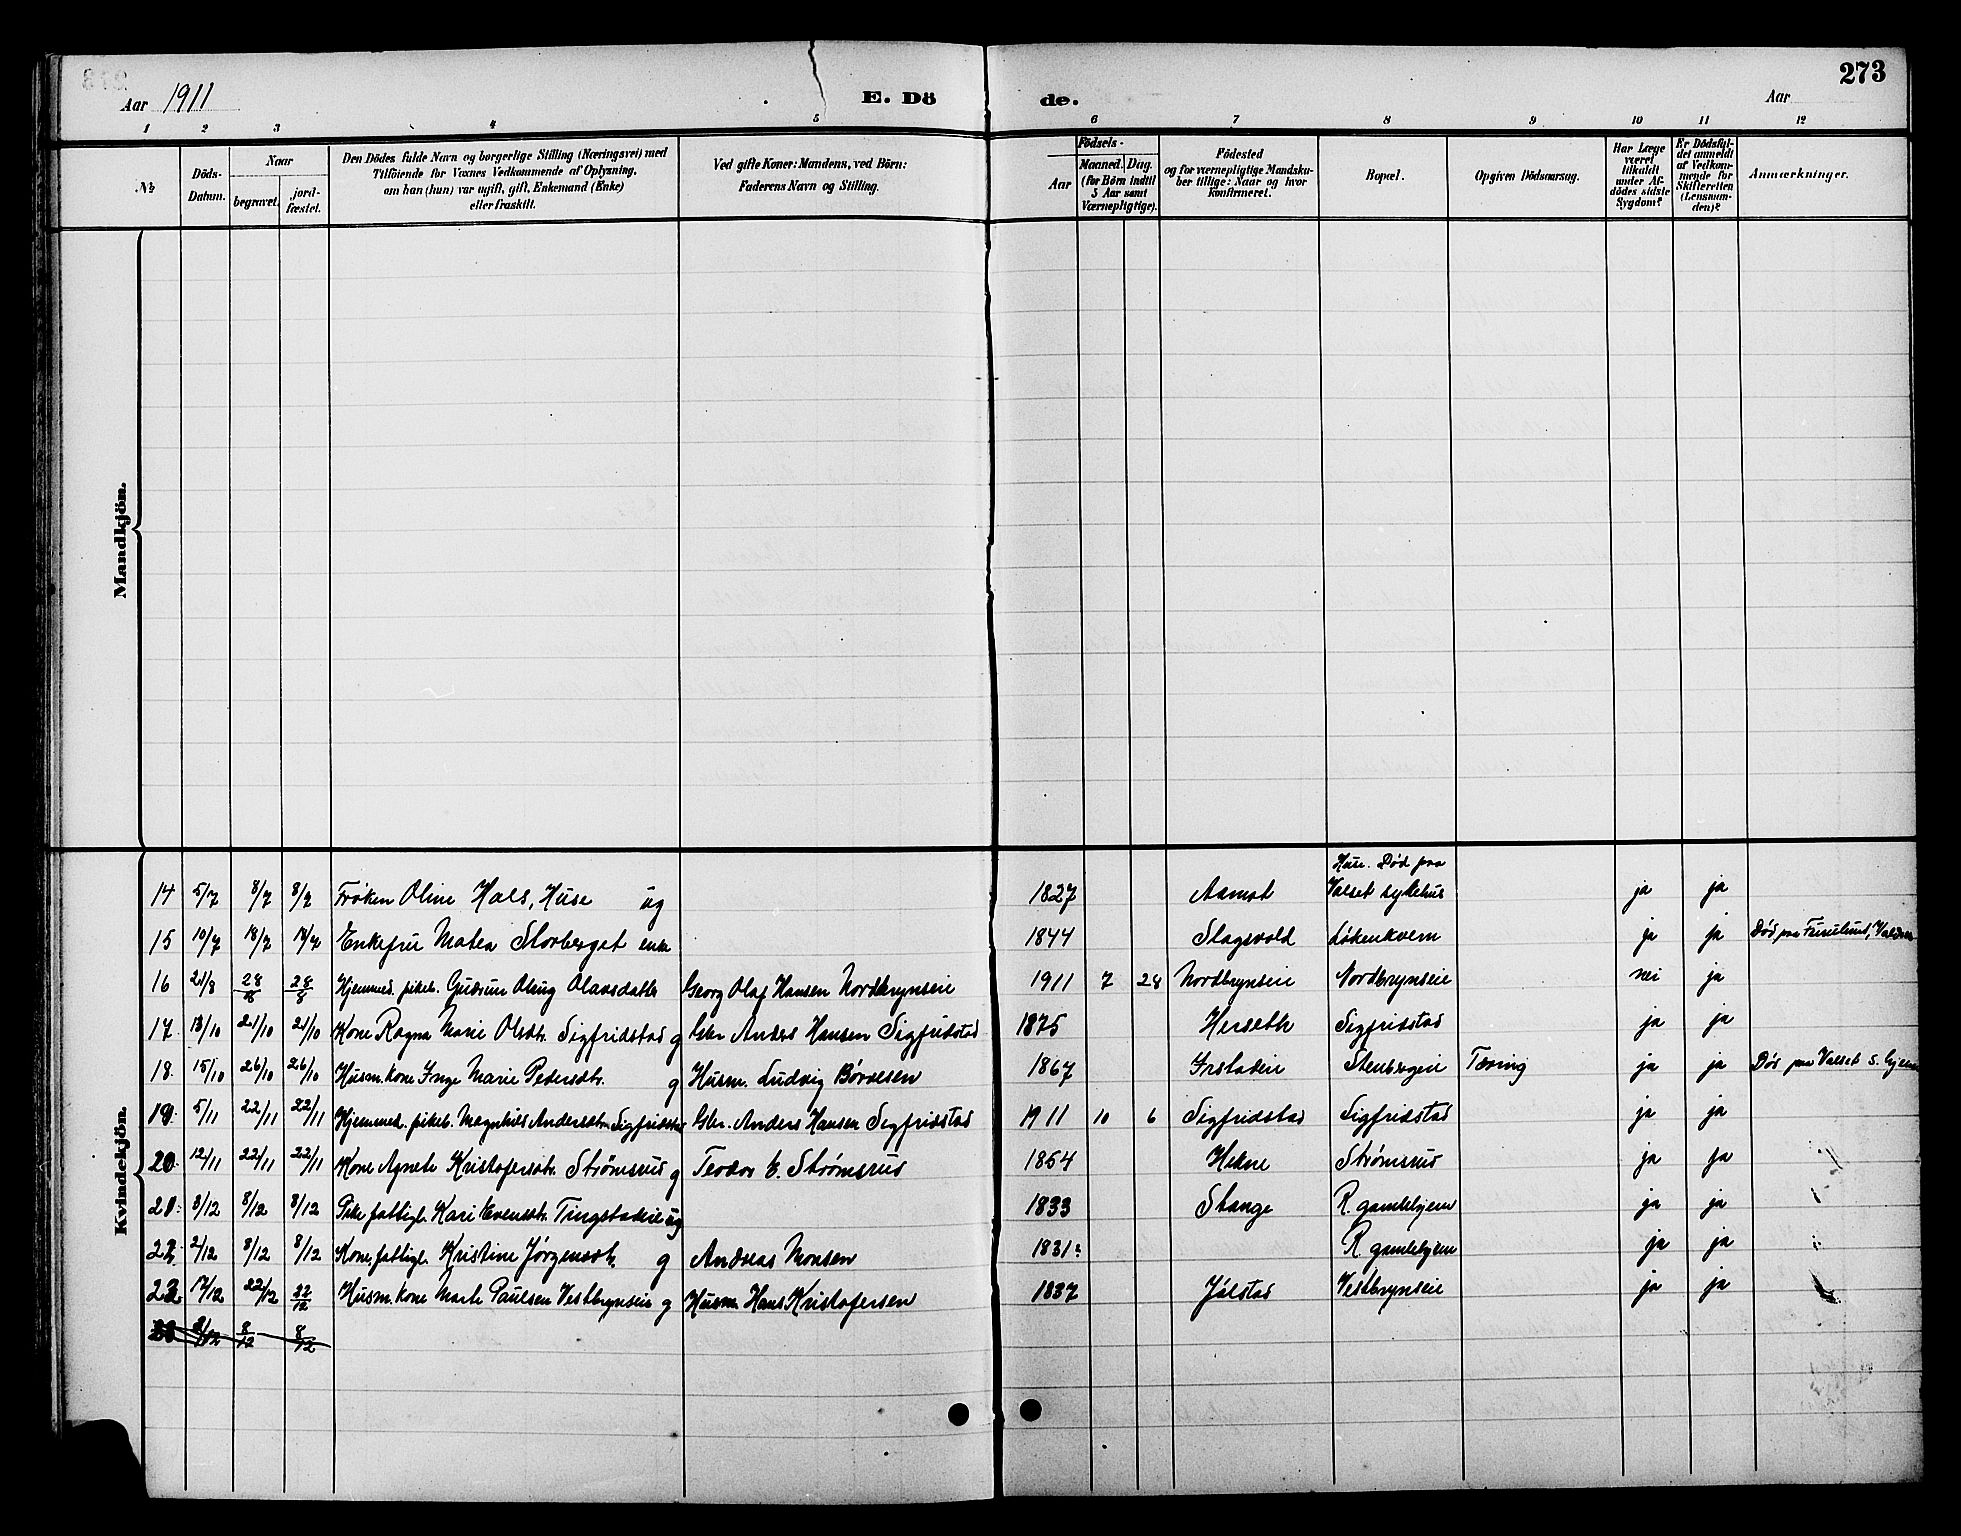 Aar 1911 E. Dö de. Aar 273
1 2 3 4 5 6 7 8 9 10 11 12
№ Döds-Datum. Naar begravet. jord-fæstet. Den Dödes fulde Navn og borgerlige Stilling (Næringsvei) med Tilföiende for Voxnes Vedkommende af Oplysning, om han (hun) var ugift, gift, Enkemand (Enke) eller fraskilt. Ved gifte Koner: Mandens, ved Börn: Faderens Navn og Stilling. Födsels- Aar Maaned. Dag. (for Börn indtil 5 Aar samt Værnepligtige). Födested og for værnepligtige Mandskuber tillige: Naar og hvor konfirmeret. Bopæl. Opgiven Dödsaarsag. Har Læge været tilkaldt under Afdödes sidste Sygdom? Er Dödsfaldet anmeldt af Vedkommende for Skifteretten (Lensmanden)? Anmærkninger.
Mandkjön.
Kvindekjön.
14 5/7 8/7 8/7 Frøken Oline Hals, Huse ug 1827 Aamot Huse. Død paa Valset sykehus ja ja
15 10/7 18/7 18/7 Enkefru Matea Storberget enke 1844 Slagsvold Løkenkvern ja ja Død paa
16 21/8 28/8 28/8 Hjemmed. pikeb. Gudrun Olaug Olavsdatter Georg Olaf Hansen Nordbrynseie 1911 7 28 Nordbrynseie Nordbrynseie nei ja
17. 18/10 21/10 21/10 Kone Ragna Marie Olsdtr. Sigfridstad g Gbr. Anders Hansen Sigfridstad 1875 Herseth Sigfridstad ja ja
18. 15/10 26/10 26/10 Husm. kone Inge Marie Pedersdtr. g Husm. Ludvig Børvesen 1867 Grstadeie Stenbergeie Tæring ja ja Død paa Valset s. hjem
19. 5/11 22/11 22/11 Hjemmed. pikeb. Magnhild Andersdtr. Sigfridstad Gbr. Anders Hansen Sigfridstad 1911 10 6 Sigfridstad Sigfridstad ja ja
20. 12/11 22/11 22/11 Kone Agnete Kristofersdtr. Strømsrud g Teodor E. Strømsrud 1864 Hekne Strømsrud ja ja
21. 3/12 8/12 8/12 Pike fattigl. Kari Evensdtr. Tingstadeie ug 1833 Stange R. gamlehjem ja ja
22. 2/12 8/12 8/12 Kone, fattigl. Kristine Jørgensdtr. g Andreas Monsen 1831: R. gamlehjem ja ja
23 17/12 22/12 22/12 Husm. kone Marte Paulsen Vestbrynseie g Husm. Hans Kristofersen 1837 Jølstad Vestbrynseie ja ja
8/12 8/12